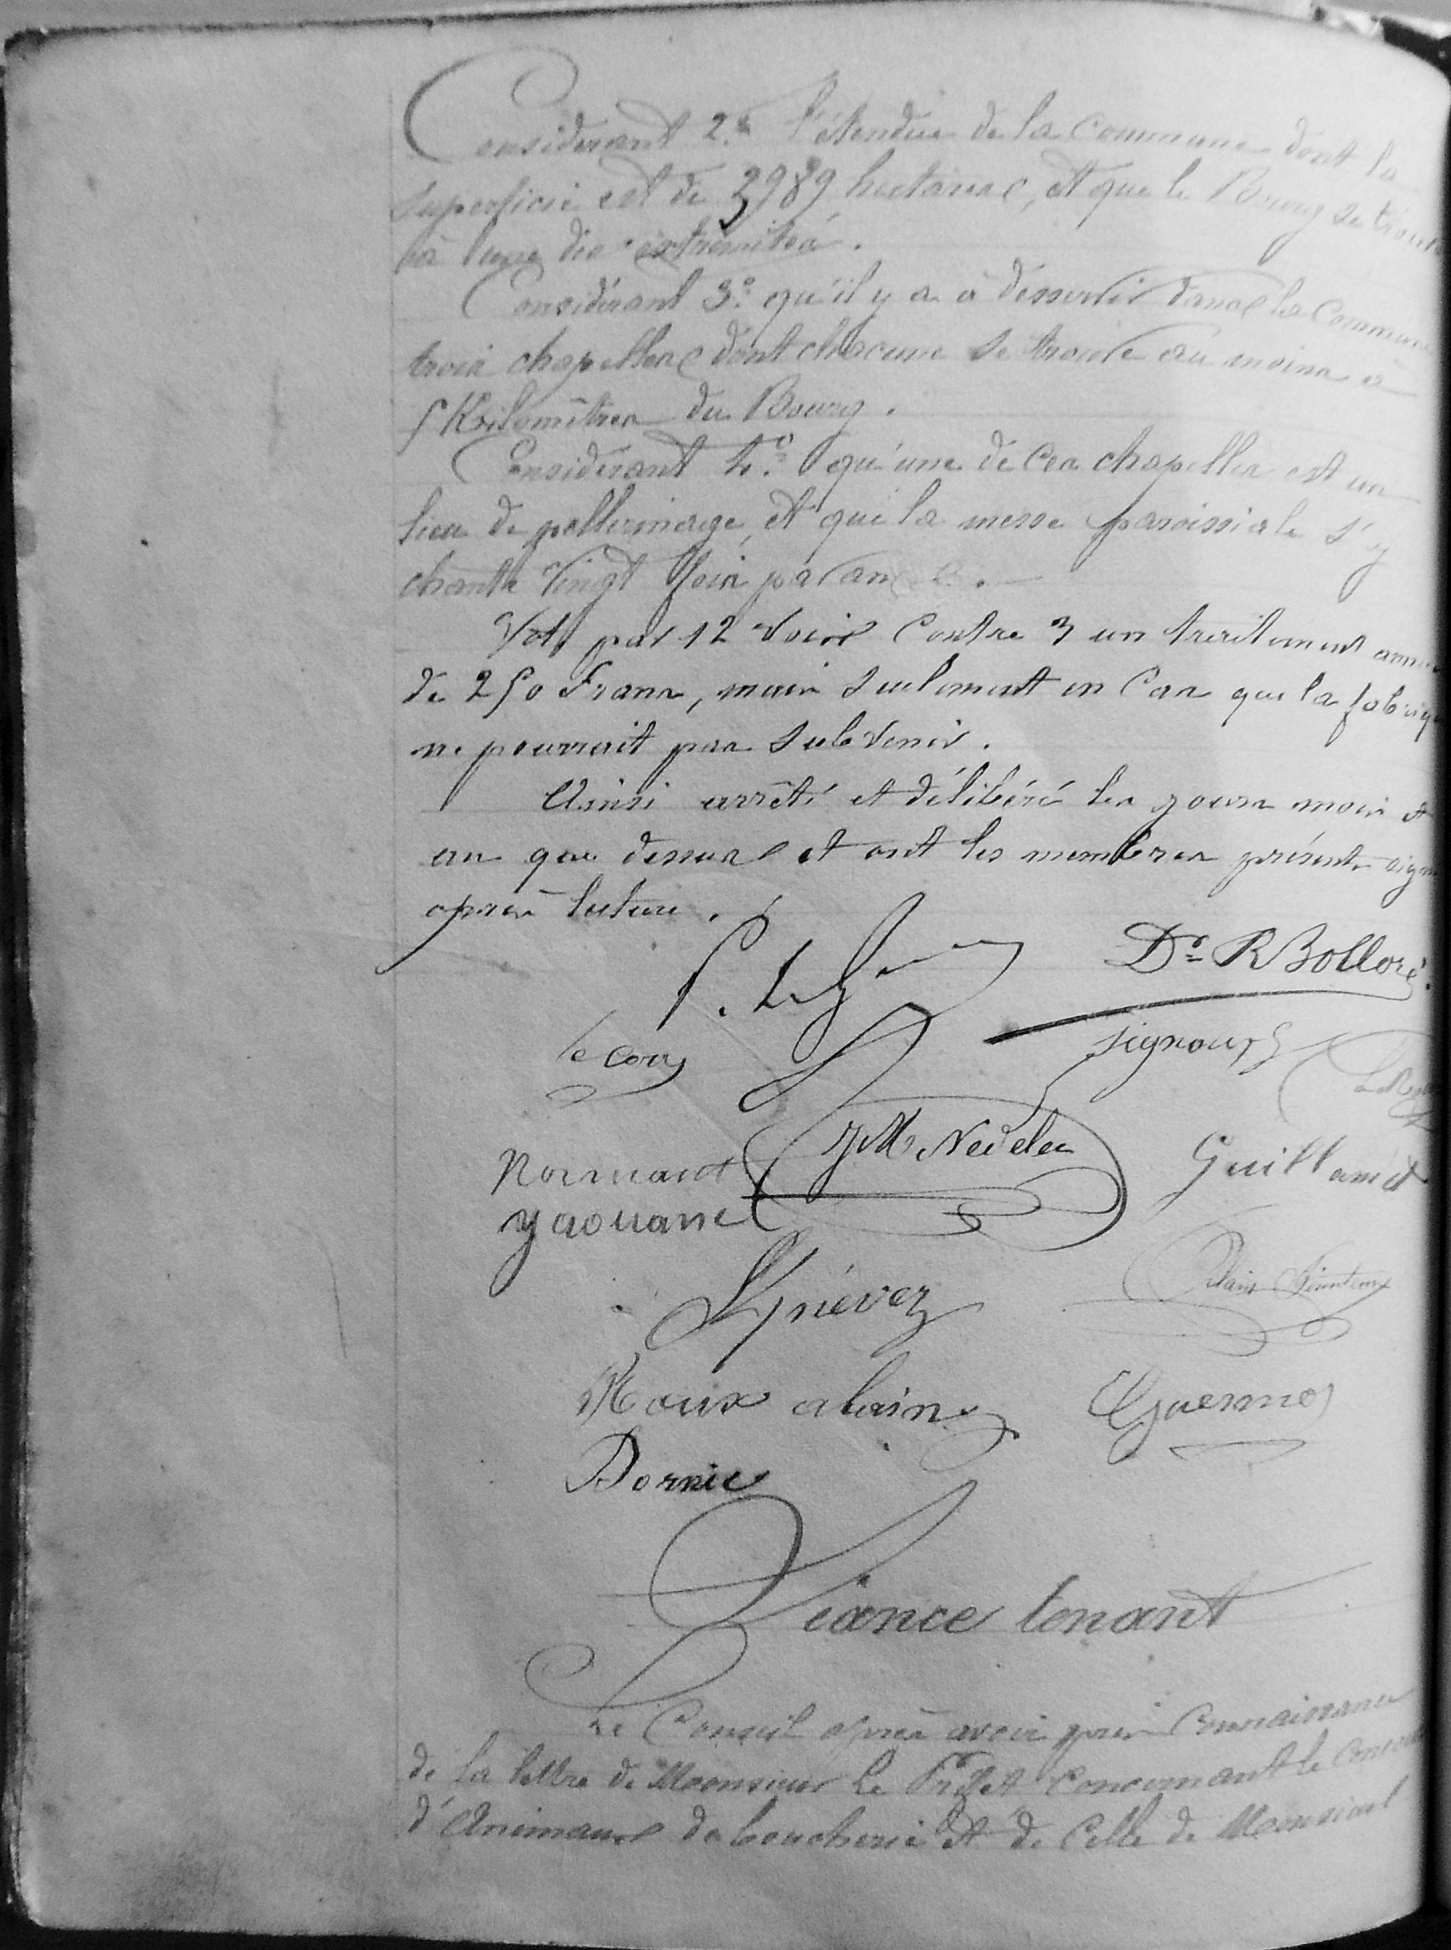 Considerant 2.° l'étendue de la Commune dont la
superficie est de 2989 hectares, et que le Bourg se trouve
à l'une des extrémités.
Considérant 3.° qu'il y a à desservir dans la Commune
trois chapelles dont chacune se trouve au moins à
5 Kilomètres du Bourg.
Considérant 4.° qu'une de ces chapelles est un
lieu de pellerinage, et que la messe paroissiale s'y
chante vingt fois par an.
Vote par 12 voix contre 3 un traitement annuel
de 250 Francs, mais seulement en cas que la fabrique
ne pourrait pas subvenir.
Ainsi arrêté et délibéré les jours mois et
an que dessus et ont les membres présents signé
après lecture.
Dr R Bolloré.
le Corre
Signour
JM Nédelec
Normant
Guillamet
yaouanc
Alain
Roux alain
Guermeur
Bornic
Séance tenante
Le Conseil après avoir pris Connaissance
de la lettre de Monsieur Le Préfet Concernant le Concours
d'Animaux de boucherie et de Celle de Monsieur